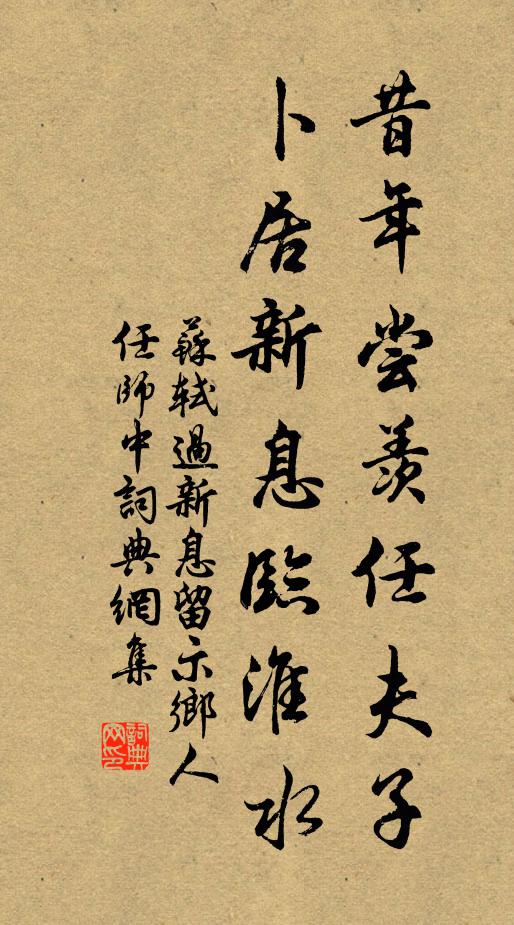 昔年尝羨任夫子
卜居新息臨淮水
蘇軾過新息留示鄉人
任師中詞典網集
詞典网印